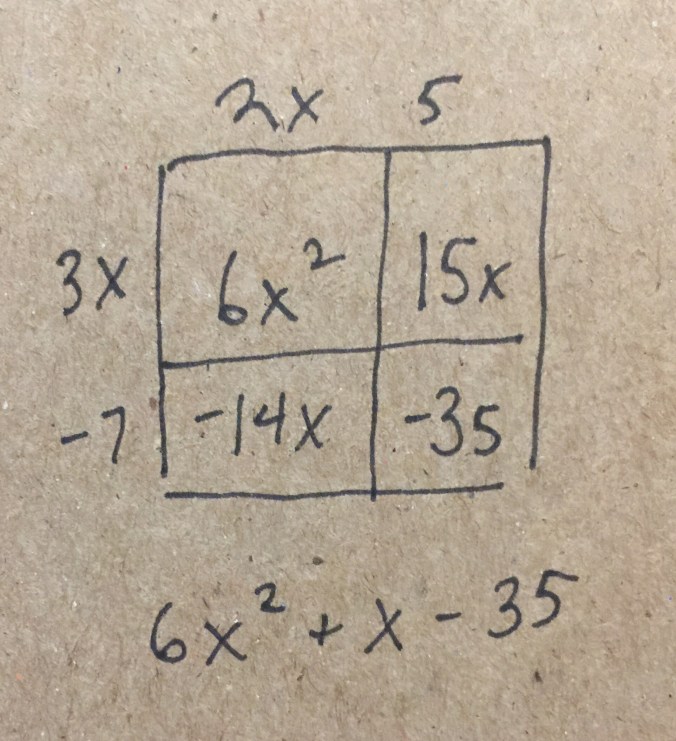 2x 5
3x 6x² 15x
-7 -14x -35
6x² + x - 35